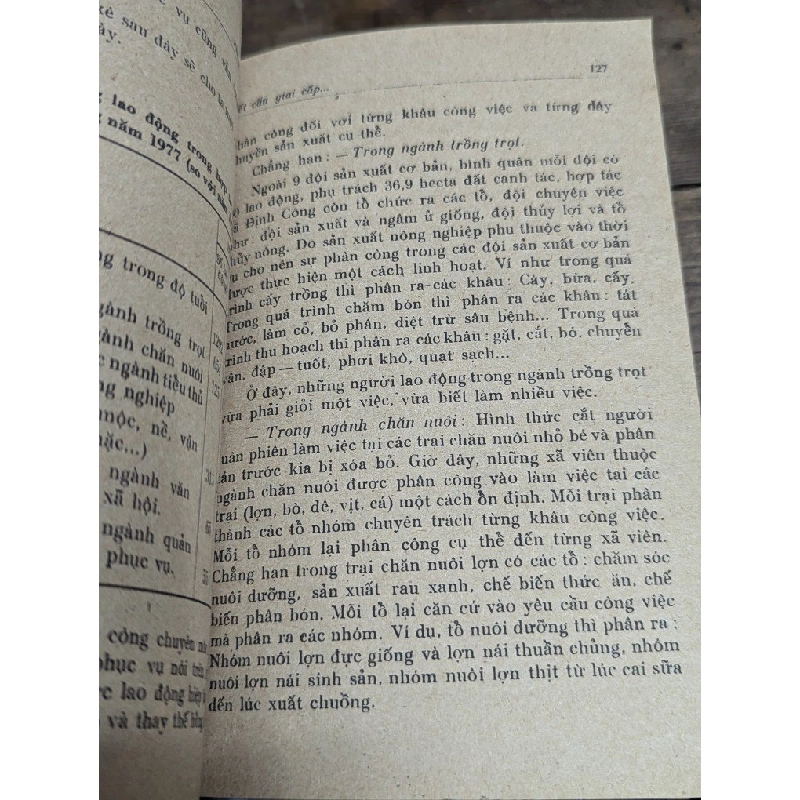 vụ cũng
kẻ sau đây sẽ cho
lao động trong
năm 1977 (so với
ng trong độ tuổi
ngành trồng trọt
gành chăn nuôi
c ngành tiểu thủ
ng nghiệp
mộc, nề, vận
ặc...)
ngành văn
xã hội.
ngành quản
phục vụ.
công chuyên
phục vụ nói trên
lao động
và thay thế
cấu giai cấp... 127
phân công đối với từng khâu công việc và từng dây
chuyền sản xuất cụ thể.
Chẳng hạn: — Trong ngành trồng trọt.
Ngoài 9 đội sản xuất cơ bản, bình quân mỗi đội có
lao động, phụ trách 36,9 hecta đất canh tác, hợp tác
xã Định Công còn tổ chức ra các tổ, đội chuyên việc
như: đội sản xuất và ngâm ủ giống, đội thủy lợi và tổ
thủy nông. Do sản xuất nông nghiệp phụ thuộc vào thời
vụ cho nên sự phân công trong các đội sản xuất cơ bản
được thực hiện một cách linh hoạt. Ví như trong quá
trình cấy trồng thì phân ra các khâu: Cày, bừa, cấy.
Trong quá trình chăm bón thì phân ra các khâu: tát
nước, làm cỏ, bỏ phân, diệt trừ sâu bệnh... Trong quá
trình thu hoạch thì phân ra các khâu: gặt, cắt, bó, chuyển
vận, đập — tuốt, phơi khô, quạt sạch...
Ở đây, những người lao động trong ngành trồng trọt
vừa phải giỏi một việc, vừa biết làm nhiều việc.
— Trong ngành chăn nuôi: Hình thức cắt người
luân phiên làm việc tại các trại chăn nuôi nhỏ bé và phân
tán trước kia bị xóa bỏ. Giờ đây, những xã viên thuộc
ngành chăn nuôi được phân công vào làm việc tại các
trại (lợn, bò, dê, vịt, cá) một cách ổn định. Mỗi trại phân
thành các tổ nhóm chuyên trách từng khâu công việc.
Mỗi tổ nhóm lại phân công cụ thể đến từng xã viên.
Chẳng hạn trong trại chăn nuôi lợn có các tổ: chăm sóc
nuôi dưỡng, sản xuất rau xanh, chế biến thức ăn, chế
biến phân bón. Mỗi tổ lại căn cứ vào yêu cầu công việc
mà phân ra các nhóm. Ví dụ, tổ nuôi dưỡng thì phân ra:
Nhóm nuôi lợn đực giống và lợn nái thuần chủng, nhóm
nuôi lợn nái sinh sản, nhóm nuôi lợn thịt từ lúc cai sữa
đến lúc xuất chuồng.